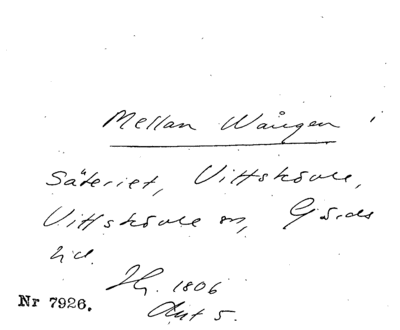 Mellan Wången
Säteriet, Vittskövle,
Vittskövle sn, Gärds
hd.
1806
Akt 5.
Nr 7926.